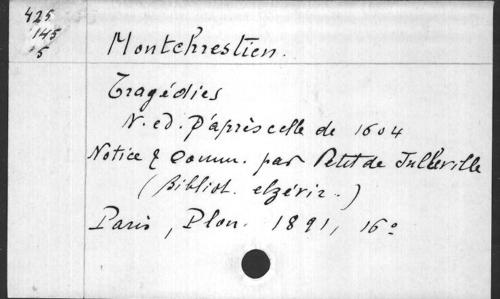 425
145
5
Montchrestien.
Tragédies
N. éd. d'après celle de 1604
Notice & Comm. par Petit de Julleville
(Bibliot. elzévir.)
Paris, Plon. 1891, 16°